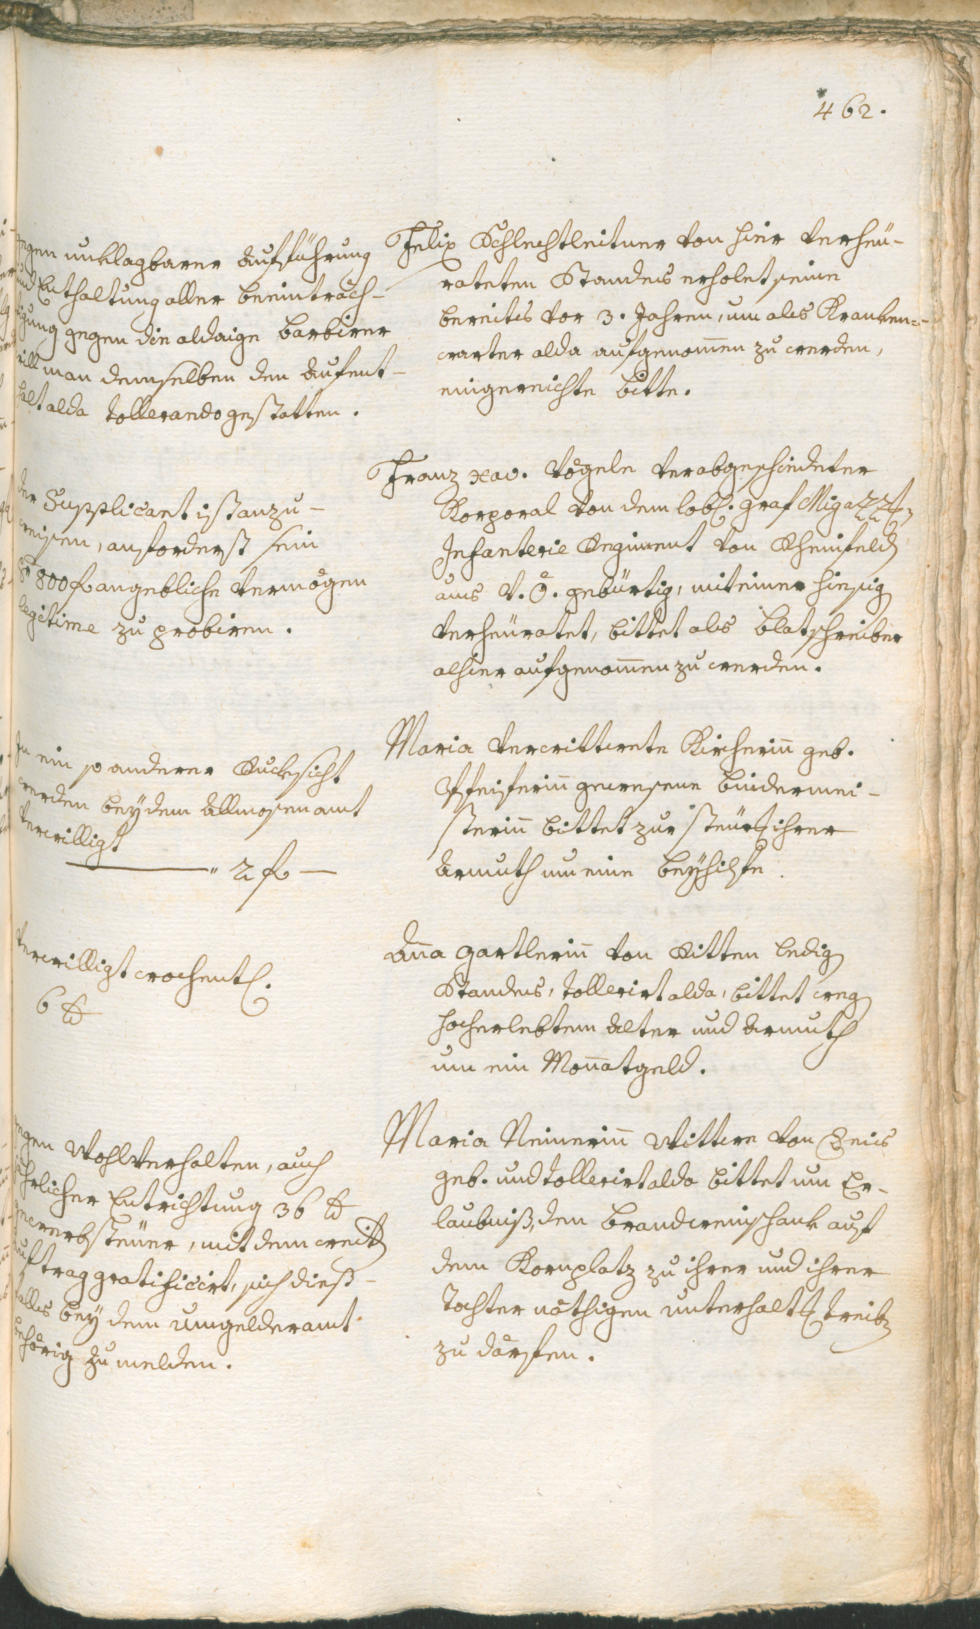 462.
gegen unklagbarer Aufführung
und Enthaltung aller beeinträch-
tigung gegen die aldaige barbierer
will man demselben den Aufent-
halt alda tollerando gestatten.
Felix Schlechtleitner von hier verheü-
rateten Standes erholet seine
bereits vor 3. Jahren, um als Kranken-
warter alda aufgenommen zu werden,
eingereichte bitte.
der Supplicant ist anzu-
weisen, anforderst sein
800 f angebliche Vermögen
legitime zu probiren.
Franz Xav. Vögele verabgeschiedeter
Korporal von dem lobl. Graf Migazzi
Infanterie Regiment von Rheinfeld
aus V. Ö. gebürtig, mit einer hiesig
verheüratet, bittet als blatschreiber
alhier aufgenommen zu werden.
In ein so anderer Rucksicht
werden bey dem Allmosenamt
verwilligt
" 2 f —
Maria verwittwete Kircherin geb.
Pfeiferin gewesene bindermei-
sterin bittet zur steür ihrer
Armuth um eine beyhilfe.
verwilligt wochentl.
6 xr
Anna Gartlerin von Ritten ledig
Standes, tollerirt alda, bittet weg
hocherlebtem Alter und Armuth
um ein Monatgeld.
gegen Wohlverhalten, auch
jährlicher Entrichtung 36 xr
gewerbsteüer, mit dem weit
auftrag gratificirt, sich dieß-
falls bey dem Umgelderamt
gehörig zu melden.
Maria Neinerin Wittwe von Seis
geb. und tollerirt alda bittet um Er-
laubniß, den brandweinschank auf
dem Kornplatz zu ihrer und ihrer
Tochter nöthigen unterhalt treiben
zu därfen.